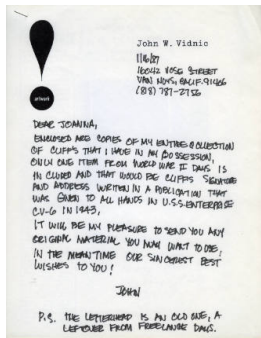 John W. Vidnic
1/16/87
16042 VOSE STREET
VAN NUYS, CALIF. 91406
(818) 787-2756
artwork
DEAR JOANNA,
ENCLOSED ARE COPIES OF MY ENTIRE COLLECTION
OF CLIFF'S THAT I HAVE IN MY POSSESSION,
ONLY ONE ITEM FROM WORLD WAR II DAYS IS
IN CLUDED AND THAT WOULD BE CLIFF'S SIGNATURE
AND ADDRESS WRITEN IN A PUBLICATION THAT
WAS GIVEN TO ALL HANDS IN U.S.S. ENTERPRISE
CV-6 IN 1943,
IT WILL BE MY PLEASURE TO SEND YOU ANY
ORIGINAL MATERIAL YOU MAY WANT TO USE,
IN THE MEANTIME OUR SINCEREST BEST
WISHES TO YOU!
JOHN
P.S. THE LETTERHEAD IS AN OLD ONE, A
LEFTOVER FROM FREELANCE DAYS.